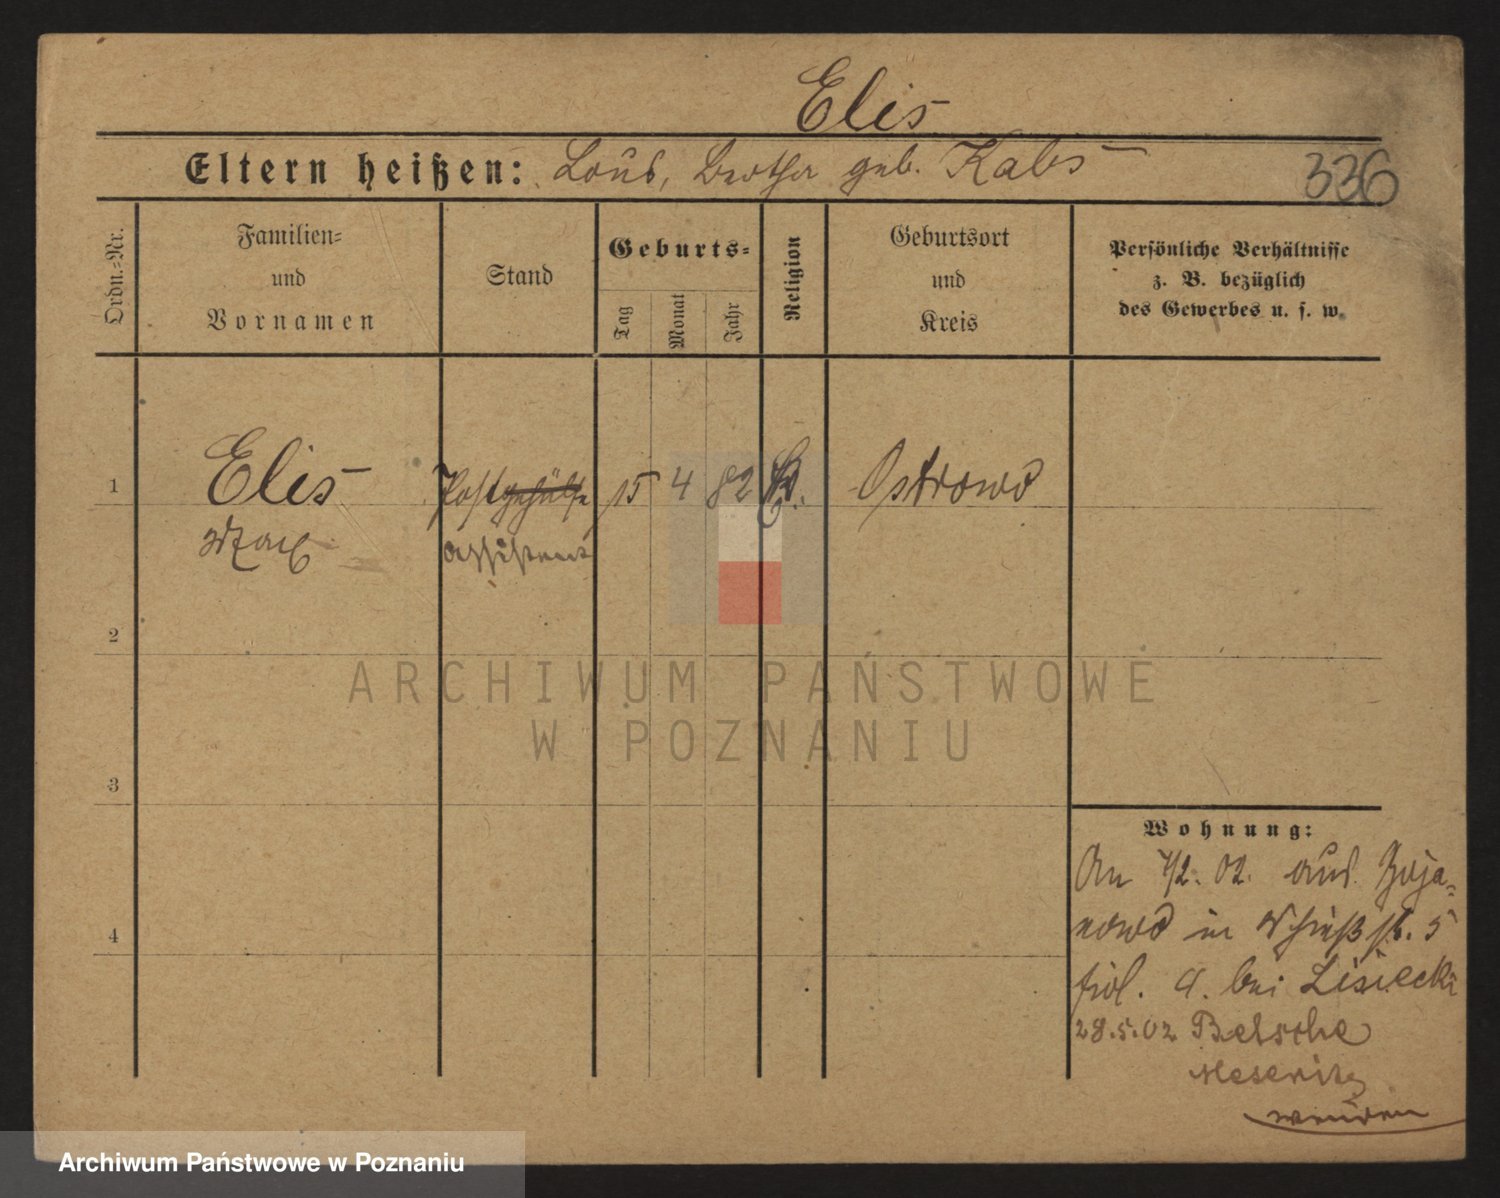 Elis
Eltern heißen: Louis, Bertha geb. Kabs
336
Ordn.-Nr.
Familien-
und
Vornamen
Stand
Geburts-
Tag
Monat
Jahr
Religion
Geburtsort
und
Kreis
Persönliche Verhältnisse
z. B. bezüglich
des Gewerbes u. s. w.
1 Elis Postgehülfe 15 4 82 Ostrowo
Max assistent
2
ARCHIWUM PAŃSTWOWE
W POZNANIU
3
Wohnung:
An 7/2. 02. aus Boja-
4
nowo in Schießstr. 5
bei Lisiecki
28.5.02 Betsche
Meseritz
wenden
Archiwum Państwowe w Poznaniu